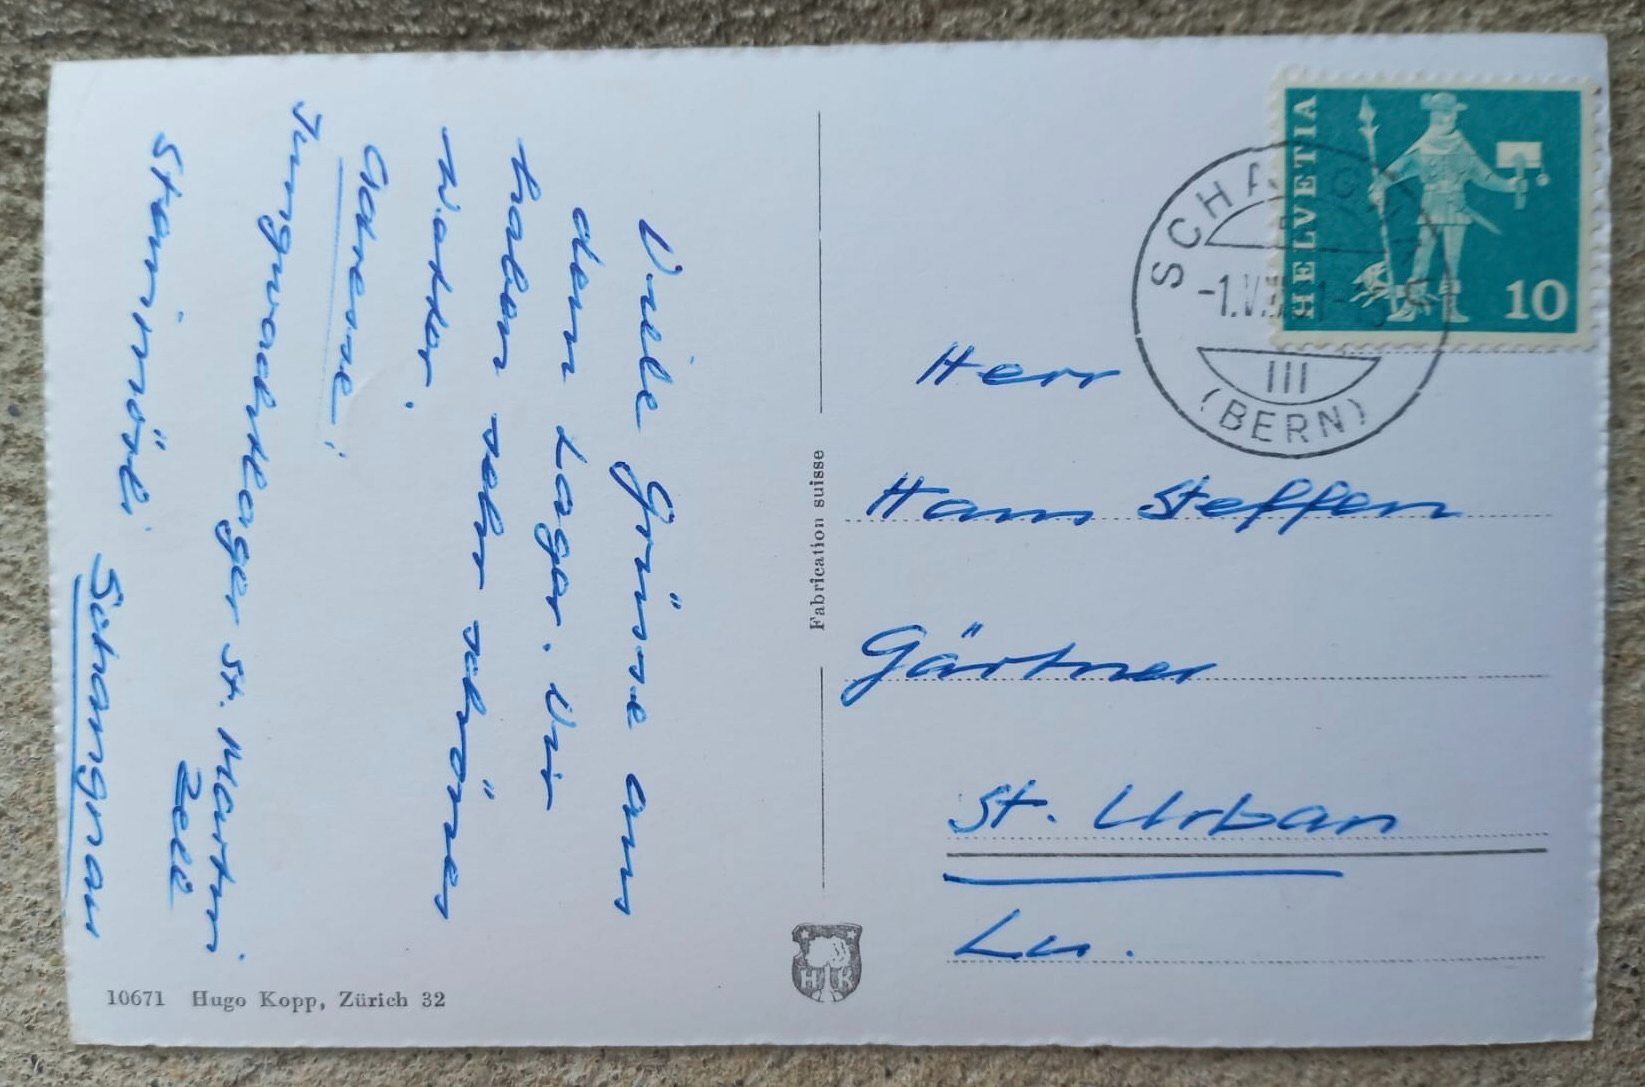 Viele Grüsse aus
dem Lager. Wir
haben sehr schönes
Wetter.
Adresse:
Jungwachtlager St. Martin
Zell
Steinmösli
Schangnau
Fabrication suisse
HELVETIA
10
(BERN)
III
Herr
Hans Steffen
Gärtner
St. Urban
Lu.
HK
10671 Hugo Kopp, Zürich 32